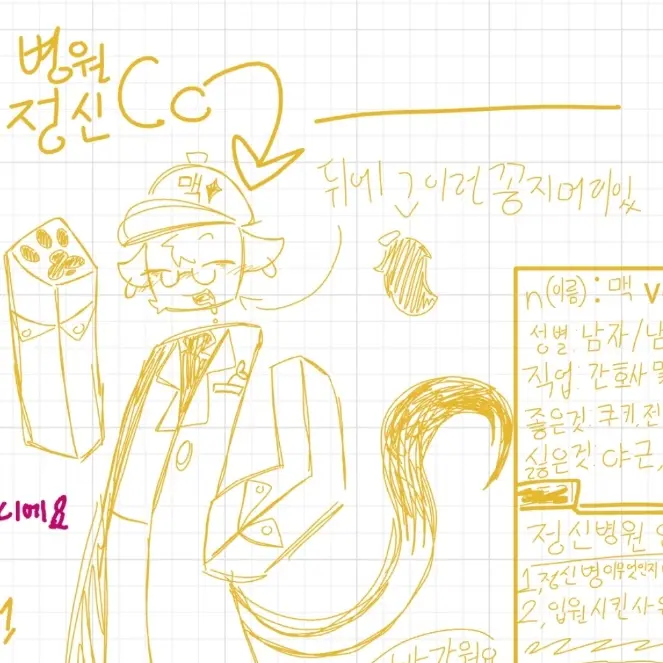 병원
정신 Co
뒤에 그 이런 꽁지머리있
맥
n(이름): 맥 v
성별: 남자/남
직업: 간호사 및
좋은것: 쿠키,전
싫은것: 야근,
디에요
정신병원
1, 정신병이무엇인지
2, 입원시킨사유
1,
반가워요